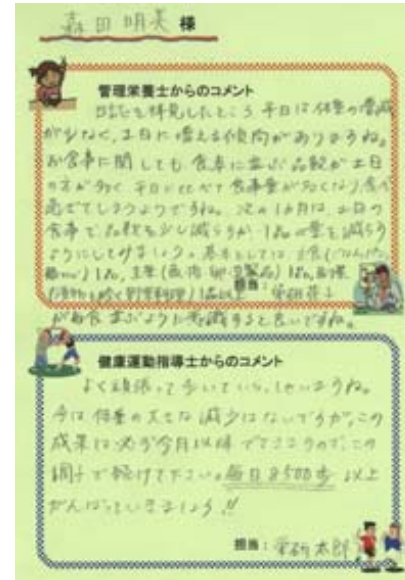 森田明美 様
管理栄養士からのコメント
日誌を拝見したところ 平日は体重の増減
が少なく、土日に増える傾向がありますね。
お食事に関しても、食卓に並ぶ品数が土日
の方が多く 平日に比べて食事量が多くなり 食べ
過ぎてしまうようですね。次の1か月は、土日の
食事で品数を少し減らすか 1品の量を減らす
ようにしてみましょう。基本としては 主食(ごはん、パン、
麺etc) 1品、主菜(魚・肉・卵・豆製品) 1品、副菜
1品以上
担当: 栄研花子
が毎食並ぶように意識すると良いですね。
健康運動指導士からのコメント
よく頑張って歩いていらっしゃいますね。
今は体重の大きな減少はないですが、この
成果は必ず今月以降 でてきますので、この
調子で続けて下さい。毎日8500歩 以上
がんばっていきましょう!!
担当: 栄研太郎